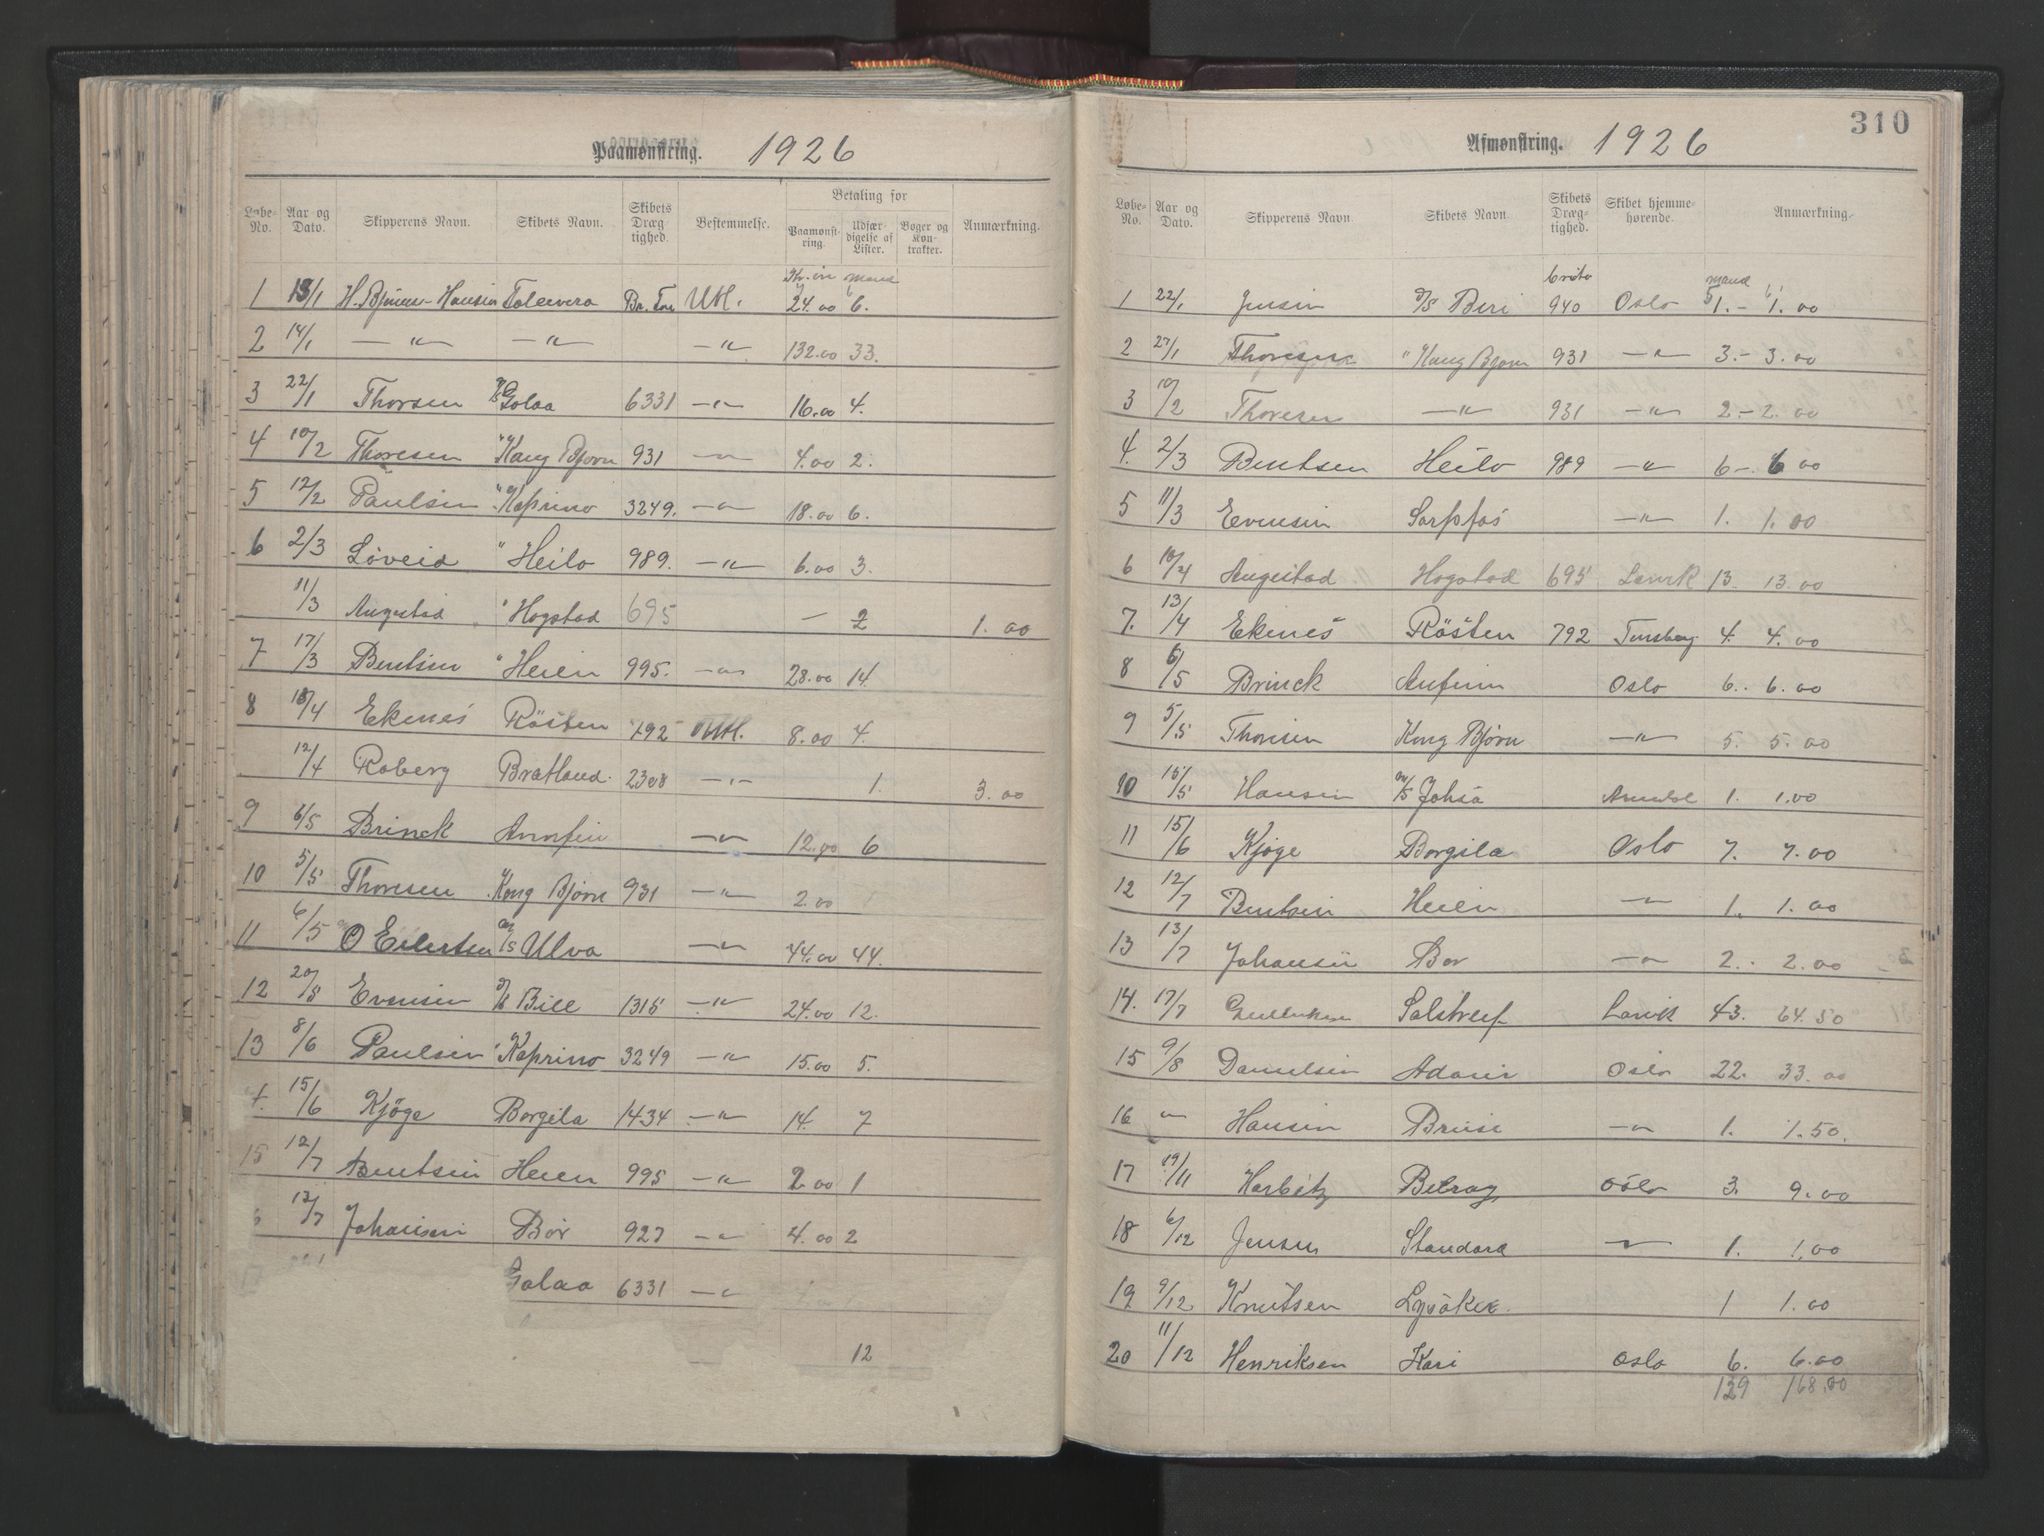 Paamønstring. 1926
Løbe-No. Aar og Dato. Skipperens Navn. Skibets Navn. Skibets Dræg-tighed. Bestemmelse. Betaling for Paamønst-ring. Udfær-digelse af Lister. Bøger og Kon-trakter. Anmærkning.
Kr. øre mand
1 13/1 H. Bjünes-Hansen Br. Ton Utl. 24.00 6.
2 14/1 —"— —"— —"— 132.00 33.
3 22/1 Thorsen Golaa 6331 —"— 16.00 4.
4 10/2 Thoresen " Kong Bjorn 931 —"— 4.00 2.
5 12/2 Paulsen " Kaprino 3249. —"— 18.00 6.
6 2/3 Løveid " Heilo 989. —"— 6.00 3.
11/3 Augestad " Hogstad 695 — 2 1.00
7 17/3 Bentsen " Heien 995. —"— 28.00 14.
8 /4 Ekenes Røsten 792 Utl. 8.00 4.
12/4 Roberg Bratland. 2308 —"— 1. 3.00
9 6/5 Brinck Arnfin —"— 12.00 6
10 5/5 Thoresen Kong Bjørn 931 —"— 2.00
11 6/5 O Eilertsen Ulva —"— 44.00 44.
12 20/5 Evensen Bill 1315 —"— 24.00 12.
13 8/6 Paulsen " Kaprino 3249 —"— 15.00 5.
4. 15/6 Kjøge Borgila 1434 —"— 14. 7
15 12/7 Bentsen Heien 995 —"— 2.00 1
6 13/7 Johansen Bør 927 —"— 4.00 2
Golaa 6331 —"—
12
310
Afmønstring. 1926
Løbe-No. Aar og Dato. Skipperens Navn. Skibets Navn Skibets Dræg-tighed. Skibet hjemme-hørende. Anmærkning.
brøto mand
1 22/1 Jensen D/S Beri 940 Oslo 1.- 1.00
2 27/1 Thoresen " Kong Bjorn 931 —"— 3.- 3.00
3 10/2 Thoresen —"— 931 —"— 2.- 2.00
4. 2/3 Bentsen Heilo 989 —"— 6 -. 6 00
5 11/3 Evensen Sarpfos —"— 1. 1.00
6 10/4 Augestad Hogstad 695 Larvik 13. 13.00
7. 13/4 Ekenes Røsten 792 Tønsberg 4. 4.00
8 6/5 Brinck Anfinn Oslo 6.. 6.00
9 5/5 Thoresen Kong Bjørn —"— 5. 5.00
10 15/5 Hansen Johsa Arendal 1. 1.00
11 15/6 Kjøge Borgila Oslo 7. 7.00
12 12/7 Bentsen Heien —"— 1. 1.00
13 13/7 Johansen Bør —"— 2.- 2.00
14. 17/7 Gulliksen Solstreif Larvik 43. 64.50
15 9/8 Danielsen Adair Oslo 22. 33.00
16 —"— Hansen Bruse —"— 1. 1.50.
17 19/11 Harbitz Belray Oslo 3. 9.00
18 6/12 Jensen Standard —"— 1. 1.00
19 9/12 Knutsen Lysaker. 1 1.00
20 11/12 Henriksen Kari Oslo 6. 6.00
129 168.00